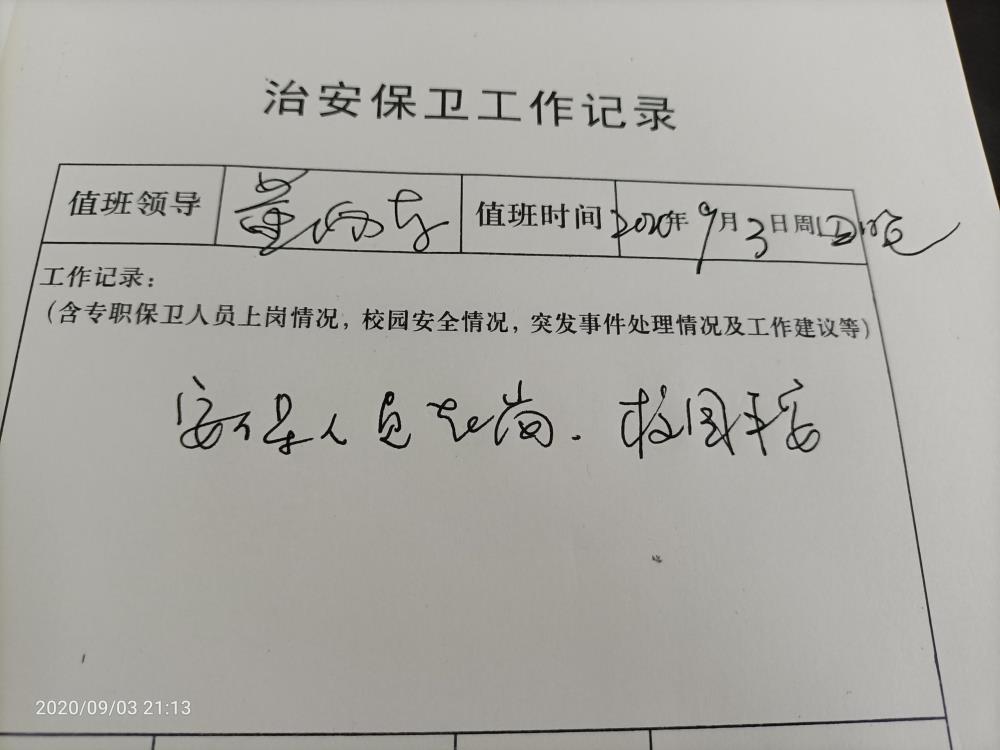 治安保卫工作记录
值班领导 董 值班时间 2020年9月3日周四晚
工作记录：
（含专职保卫人员上岗情况，校园安全情况，突发事件处理情况及工作建议等）
安保人员在岗.校园平安
2020/09/03 21:13